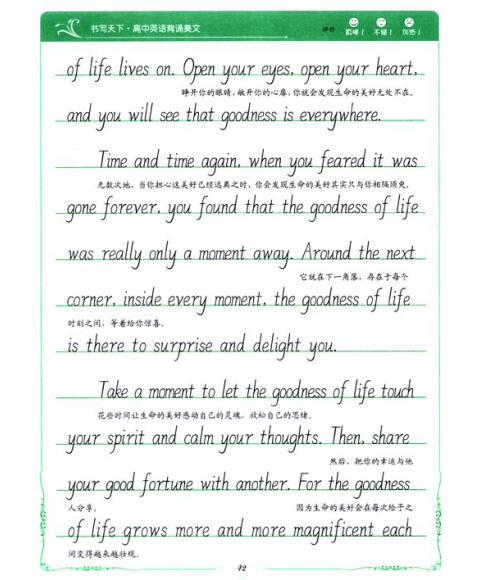 书写天下·高中英语背诵美文
评价 最棒！ 不错！ 加热！
of life lives on. Open your eyes, open your heart,
睁开你的眼睛，敞开你的心扉，你就会发现生命的美好无处不在。
and you will see that goodness is everywhere.
Time and time again, when you feared it was
无数次地，当你担心这美好已经远离之时，你会发现生命的美好其实只与你相隔须臾。
gone forever, you found that the goodness of life
was really only a moment away. Around the next
它就在下一角落，存在于每个
corner, inside every moment, the goodness of life
时刻之间，等着给你惊喜。
is there to surprise and delight you.
Take a moment to let the goodness of life touch
花些时间让生命的美好感动自己的灵魂，放松自己的思绪。
your spirit and calm your thoughts. Then, share
然后，把你的幸运与他
your good fortune with another. For the goodness
人分享。 因为生命的美好会在每次给予之
of life grows more and more magnificent each
间变得越来越壮观。
42